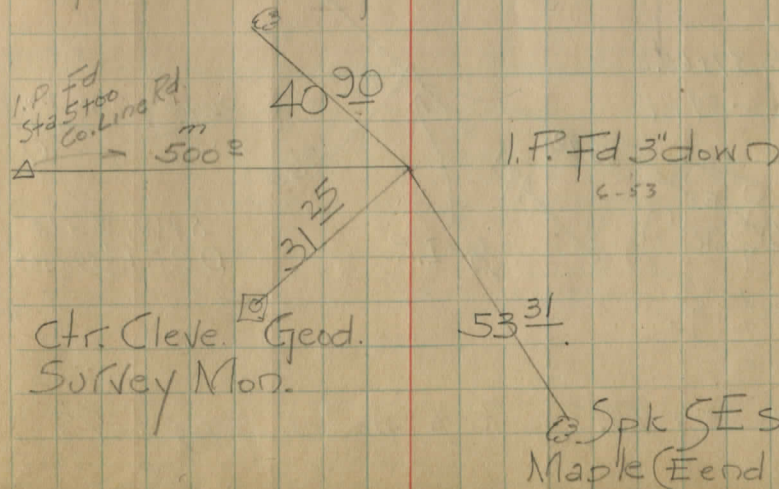 40 90
I.P. Fd
Sta 5+00
Co. Line Rd.
m
500 0
I.P. Fd 3" down
6-53
31 25
53 31
Ctr. Cleve. Geod.
Survey Mon.
Spk SE s
Maple (E end